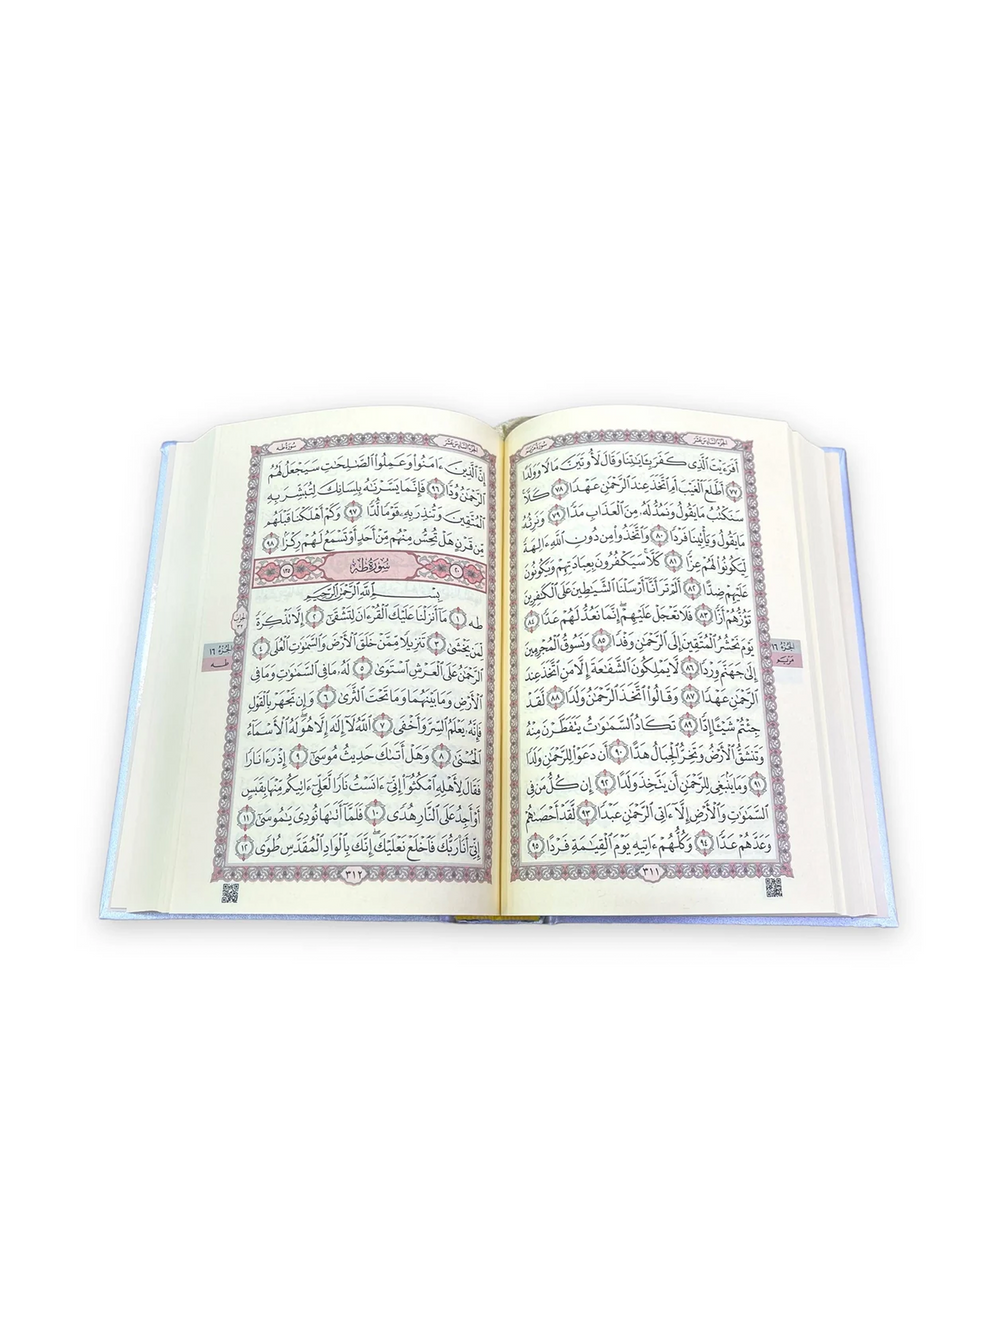 الجزء السادس عشر
سورة مريم
أفرءيت الذي كفر بـٔايـٰتنا وقال لأوتين مالا وولدا
٧٧ أطلع الغيب أم اتخذ عند الرحمـٰن عهدا ٧٨ كلا
سنكتب ما يقول ونمد له من العذاب مدا ٧٩ ونرثه
ما يقول ويأتينا فردا ٨٠ واتخذوا من دون الله ءالهة
ليكونوا لهم عزا ٨١ كلا سيكفرون بعبادتهم ويكونون
عليهم ضدا ٨٢ ألم تر أنا أرسلنا الشيـٰطين على الكـٰفرين
تؤزهم أزا ٨٣ فلا تعجل عليهم إنما نعد لهم عدا ٨٤
يوم نحشر المتقين إلى الرحمـٰن وفدا ٨٥ ونسوق المجرمين
إلى جهنم وردا ٨٦ لا يملكون الشفـٰعة إلا من اتخذ عند
الرحمـٰن عهدا ٨٧ وقالوا اتخذ الرحمـٰن ولدا ٨٨ لقد
جئتم شيـٔا إدا ٨٩ تكاد السمـٰوٰت يتفطرن منه
وتنشق الأرض وتخر الجبال هدا ٩٠ أن دعوا للرحمـٰن ولدا
٩١ وما ينبغي للرحمـٰن أن يتخذ ولدا ٩٢ إن كل من في
السمـٰوٰت والأرض إلا ءاتي الرحمـٰن عبدا ٩٣ لقد أحصىٰهم
وعدهم عدا ٩٤ وكلهم ءاتيه يوم القيـٰمة فردا ٩٥
٣١١
الجزء ١٦
مريم
الجزء السادس عشر
سورة طه
إن الذين ءامنوا وعملوا الصـٰلحـٰت سيجعل لهم
الرحمـٰن ودا ٩٦ فإنما يسرنـٰه بلسانك لتبشر به
المتقين وتنذر به قوما لدا ٩٧ وكم أهلكنا قبلهم
من قرن هل تحس منهم من أحد أو تسمع لهم ركزا ٩٨
٢٠ سورة طه ١٣٥
بسم الله الرحمـٰن الرحيم
طه ١ ما أنزلنا عليك القرءان لتشقىٰ ٢ إلا تذكرة
لمن يخشىٰ ٣ تنزيلا ممن خلق الأرض والسمـٰوٰت العلى ٤
الرحمـٰن على العرش استوىٰ ٥ له ما في السمـٰوٰت وما في
الأرض وما بينهما وما تحت الثرىٰ ٦ وإن تجهر بالقول
فإنه يعلم السر وأخفى ٧ الله لا إلـٰه إلا هو له الأسماء
الحسنىٰ ٨ وهل أتىٰك حديث موسىٰ ٩ إذ رءا نارا
فقال لأهله امكثوا إني ءانست نارا لعلي ءاتيكم منها بقبس
أو أجد على النار هدى ١٠ فلما أتىٰها نودي يـٰموسىٰ ١١
إني أنا ربك فاخلع نعليك إنك بالواد المقدس طوى ١٢
٣١٢
الجزء ١٦
طه